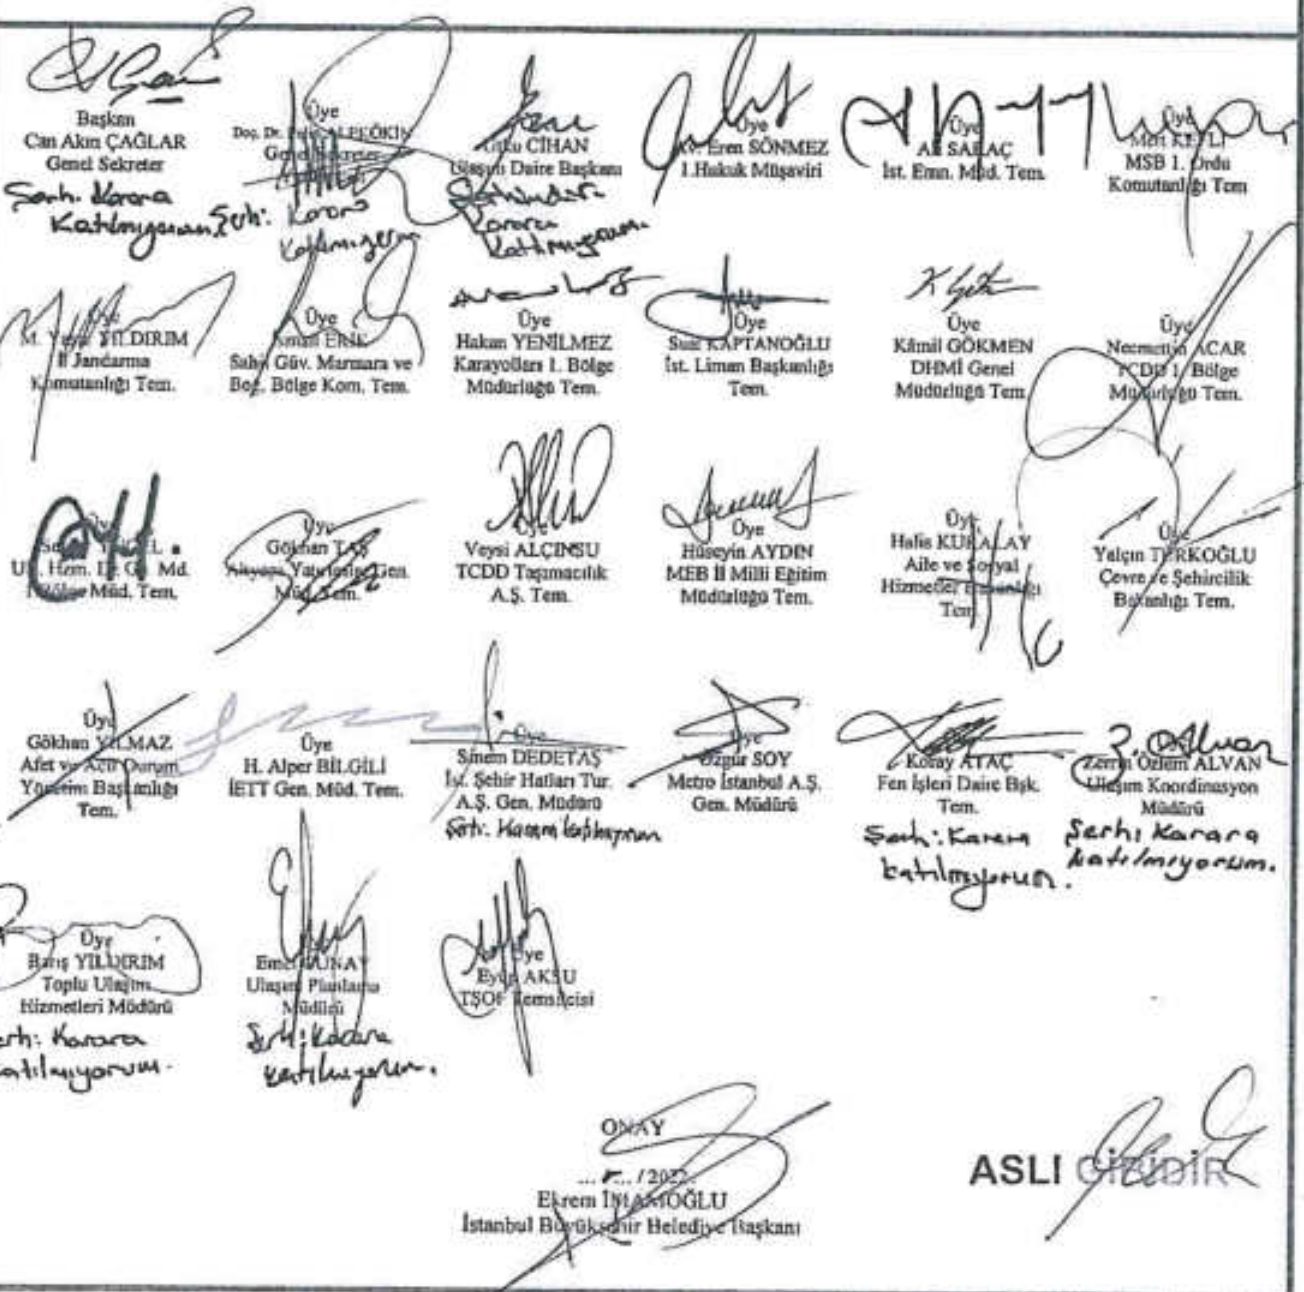 Başkan
Can Akın ÇAĞLAR
Genel Sekreter
Şerh: Karara
Katılmıyorum.
Üye
Doç. Dr.
Genel Sekreter
Şerh: Karara
Katılmıyorum
Üye
CİHAN
Ulaşım Daire Başkanı
Karara
Katılmıyorum.
Üye
Av. Eren SÖNMEZ
1.Hukuk Müşaviri
Üye
SARAÇ
İst. Emn. Müd. Tem.
Üye
MSB 1. Ordu
Komutanlığı Tem
Üye
M. YILDIRIM
İl Jandarma
Komutanlığı Tem.
Üye
ERİK
Sahil Güv. Marmara ve
Boğ. Bölge Kom. Tem.
Üye
Hakan YENİLMEZ
Karayolları 1. Bölge
Müdürlüğü Tem.
Üye
Suat KAPTANOĞLU
İst. Liman Başkanlığı
Tem.
Üye
Kâmil GÖKMEN
DHMİ Genel
Müdürlüğü Tem
Üye
Necmettin ACAR
TCDD 1. Bölge
Müdürlüğü Tem.
Üye
Md.
Bölge Müd. Tem.
Üye
Gökhan TAŞ
Altyapı Yatırımları Gen.
Müd. Tem.
Üye
Veysi ALÇINSU
TCDD Taşımacılık
A.Ş. Tem.
Üye
Hüseyin AYDIN
MEB İl Milli Eğitim
Müdürlüğü Tem.
Üye
Halis KURALAY
Aile ve Sosyal
Hizmetler Bakanlığı
Tem.
Üye
Yalçın TÜRKOĞLU
Çevre ve Şehircilik
Bakanlığı Tem.
Üye
Gökhan YILMAZ
Afet ve Acil Durum
Yönetimi Başkanlığı
Tem.
Üye
H. Alper BİLGİLİ
İETT Gen. Müd. Tem.
Üye
Sinem DEDETAŞ
İst. Şehir Hatları Tur.
A.Ş. Gen. Müdürü
Şerh: Karara katılmıyorum
Üye
Özgür SOY
Metro İstanbul A.Ş.
Gen. Müdürü
Koray ATAÇ
Fen İşleri Daire Bşk.
Tem.
Şerh: Karara
katılmıyorum.
Z. Alvan
Zerrin Özlem ALVAN
Ulaşım Koordinasyon
Müdürü
Şerh: Karara
katılmıyorum.
Üye
Barış YILDIRIM
Toplu Ulaşım
Hizmetleri Müdürü
erh: Karara
atılmıyorum.
Emel GÜNAY
Ulaşım Planlama
Müdürü
Şerh: Karara
katılmıyorum.
Üye
Eyüp AKSU
TŞOF Temsilcisi
ONAY
... /2022
Ekrem İMAMOĞLU
İstanbul Büyükşehir Belediye Başkanı
ASLI GİBİDİR